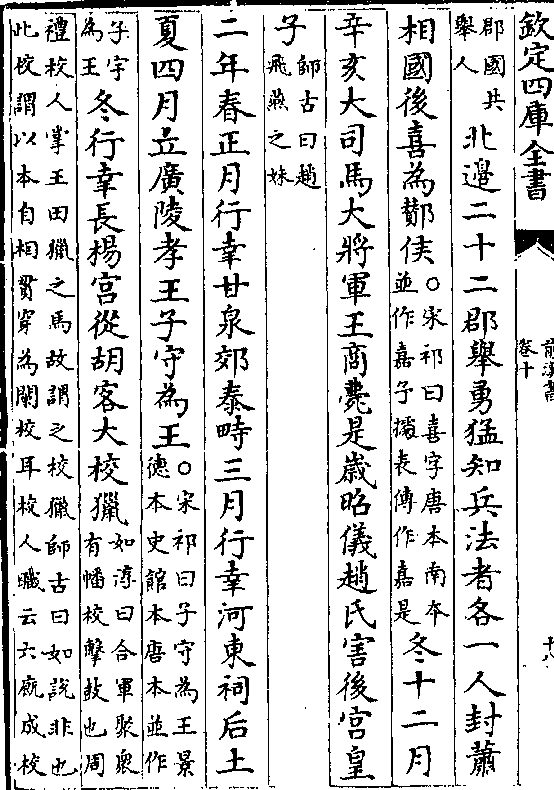 欽定四庫全書
前漢書
卷十
十八
郡國共
舉人
北邊二十二郡舉勇猛知兵法者各一人封蕭
相國後喜為酇侯
○宋祁曰喜字唐本南本
並作嘉予據表傳作嘉是
冬十二月
辛亥大司馬大將軍王商薨是歲昭儀趙氏害後宮皇
子
師古曰趙
飛燕之妹
二年春正月行幸甘泉郊泰畤三月行幸河東祠后土
夏四月立廣陵孝王子守為王
○宋祁曰子守為王景
德本史館本唐本並作
子字
為王
冬行幸長楊宮從胡客大校獵
如淳曰合軍聚衆
有幡校擊鼓也周
禮校人掌王田獵之馬故謂之校獵師古曰如說非也
此校謂以本自相貫穿為闌校耳校人職云六廏成校